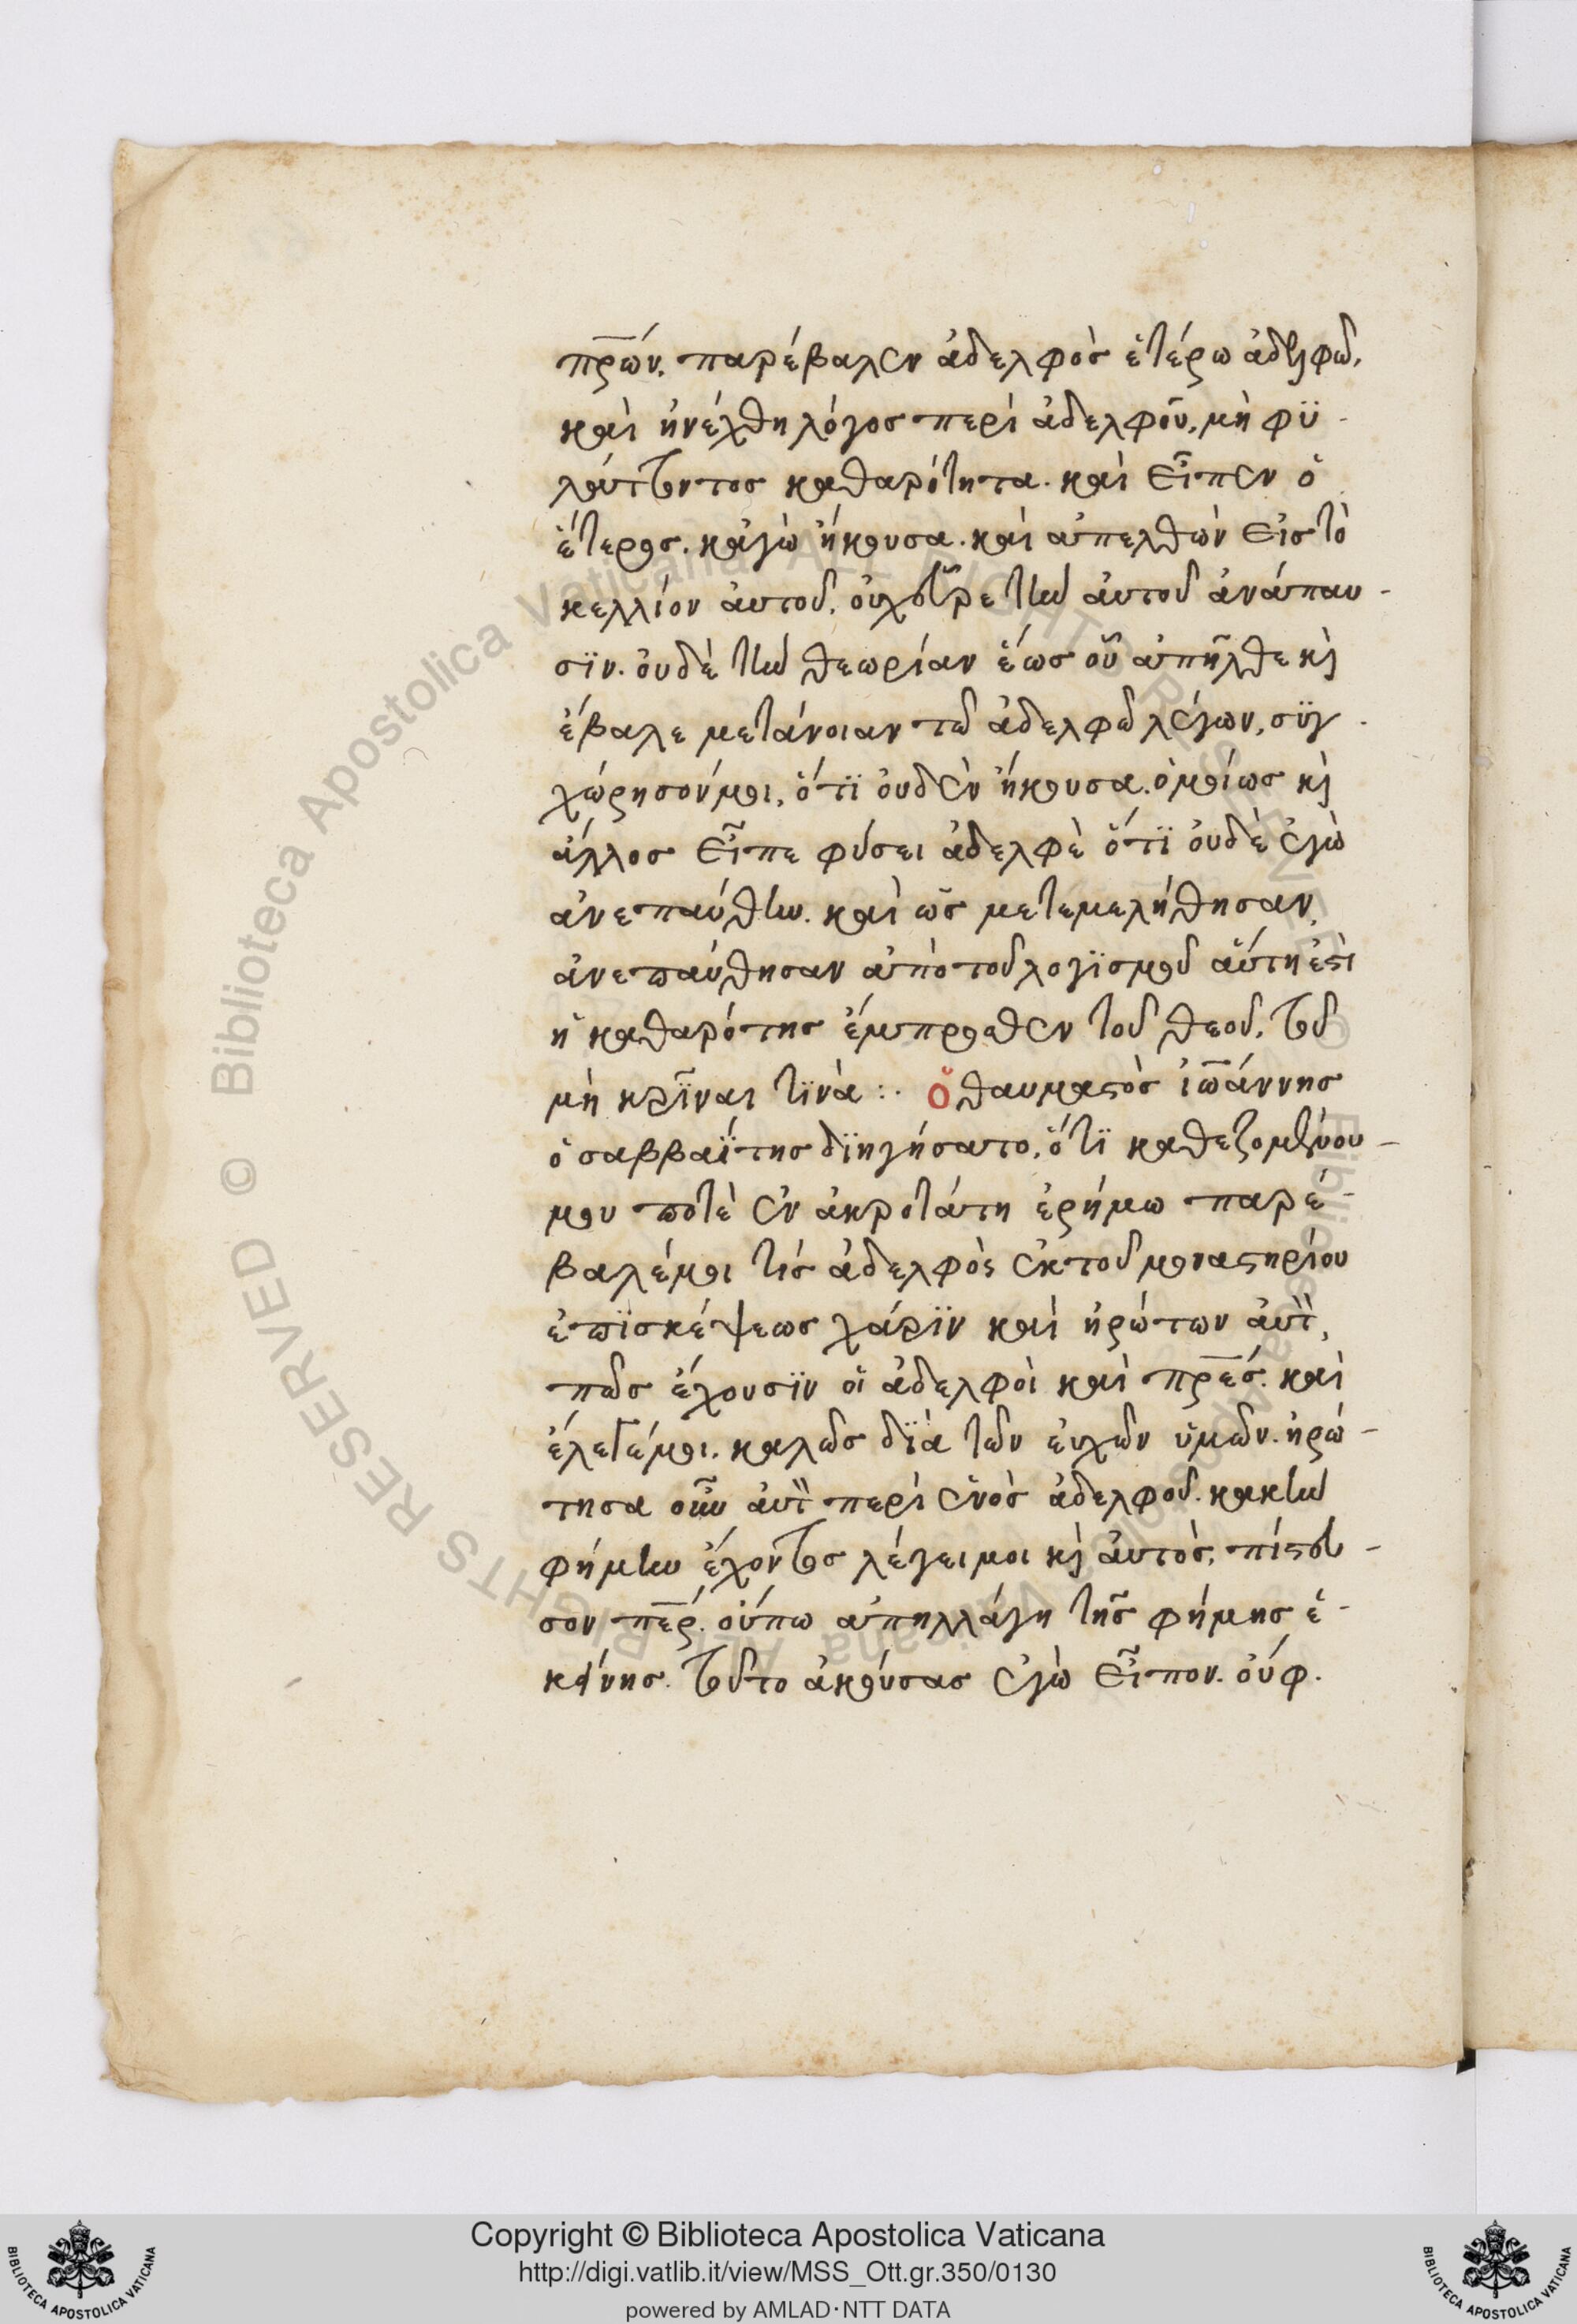 πρ̅ων. παρέβαλεν ἀδελφὸς ἑτέρω ἀδελφῶ.
καὶ ἠνέχθη λόγος περὶ ἀδελφοῦ, μὴ φϋ-
λάττοντος καθαρότητα. καὶ εἶπεν ὁ
ἕτερος. κἀγὼ ἤκουσα. καὶ ἀπελθὼν εἰς τὸ
κελλίον ἀυτοῦ, οὐχ εὗρε τὴν ἀυτοῦ ἀνάπαυ-
σϊν. ὀυδὲ τὴν θεωρίαν ἕως οὗ ἀπῆλθε κὶ
ἔβαλε μετάνοιαν τῶ ἀδελφῶ λέγων, σϋγ-
χώρησόν μοι, ὅτϊ ὀυδὲν ἤκουσα. ὁμοίως κὶ
ἄλλος εἶπε φύσει ἀδελφὲ ὅτϊ ὀυδὲ ἐγὼ
ἀνεπαύθην. καὶ ὡς μετεμελήθησαν,
ἀνεπαύθησαν ἀπὸ τοῦ λογϊσμοῦ ἅυτη ἐστὶ
ἡ καθαρότης ἔμπροσθεν τοῦ θεοῦ, τοῦ
μὴ κρῖναι τϊνὰ :. ὁ θαυμαστὸς ἰω̅άννης
ὁ σαββαΐτης δϊηγήσατο, ὅτϊ καθεζομένου-
μου ποτὲ ἐν ἀκροτάτη ἐρήμω παρέ-
βαλέ μοι τὶς ἀδελφὸς ἐκ τοῦ μοναστηρίου
ἐπϊσκέψεως χάρϊν καὶ ἠρώτων ἀυτὸν,
πῶς ἔχουσϊν οἱ ἀδελφοὶ καὶ πρ̅ες. καὶ
ἔλεγέ μοι. καλῶς δϊὰ τῶν ἐυχῶν ὑμῶν. ἠρώ-
τησα οὖν ἀυτὸν περὶ ἑνὸς ἀδελφοῦ. κακὴν
φήμην ἔχοντος λέγει μοι κὶ ἀυτὸς, πίστευ-
σον πε̅ρ. οὔπω ἀπηλλάγη τῆς φήμης ἐ-
κείνης. τοῦτο ἀκούσας ἐγὼ εἶπον. ὀύφ.
Copyright © Biblioteca Apostolica Vaticana
http://digi.vatlib.it/view/MSS_Ott.gr.350/0130
powered by AMLAD·NTT DATA